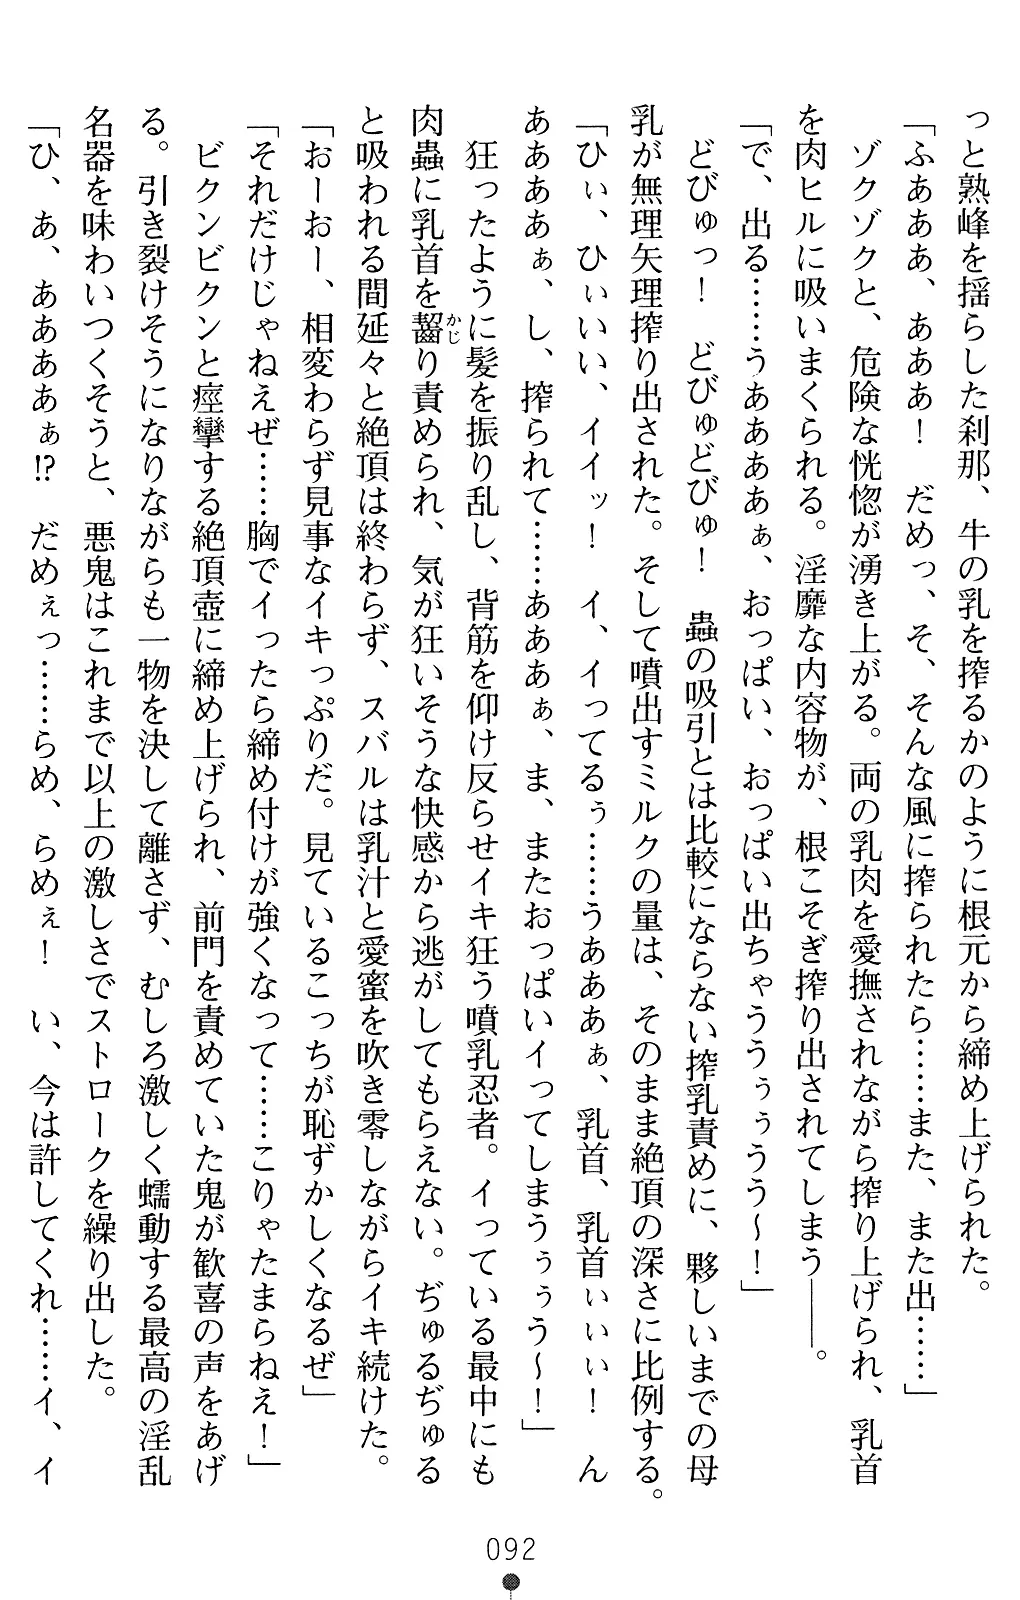 っと熟峰を揺らした刹那、牛の乳を搾るかのように根元から締め上げられた。
「ふあああ、あああ！　だめっ、そ、そんな風に搾られたら……また、また出……」
　ゾクゾクと、危険な恍惚が湧き上がる。両の乳肉を愛撫されながら搾り上げられ、乳首
を肉ヒルに吸いまくられる。淫靡な内容物が、根こそぎ搾り出されてしまう――。
「で、出る……うああああぁ、おっぱい、おっぱい出ちゃううぅぅうう～！」
　どびゅっ！　どびゅどびゅ！　蟲の吸引とは比較にならない搾乳責めに、夥しいまでの母
乳が無理矢理搾り出された。そして噴出すミルクの量は、そのまま絶頂の深さに比例する。
「ひぃ、ひぃいい、イイッ！　イ、イってるぅ……うあああぁ、乳首、乳首ぃぃぃ！　ん
ああああぁ、し、搾られて……あああぁ、ま、またおっぱいイってしまうぅぅう～！」
　狂ったように髪を振り乱し、背筋を仰け反らせイキ狂う噴乳忍者。イっている最中にも
肉蟲に乳首を齧り責められ、気が狂いそうな快感から逃がしてもらえない。ぢゅるぢゅる
かじ
と吸われる間延々と絶頂は終わらず、スバルは乳汁と愛蜜を吹き零しながらイキ続けた。
「おーおー、相変わらず見事なイキっぷりだ。見ているこっちが恥ずかしくなるぜ」
「それだけじゃねえぜ……胸でイったら締め付けが強くなって……こりゃたまらねえ！」
　ビクンビクンと痙攣する絶頂壺に締め上げられ、前門を責めていた鬼が歓喜の声をあげ
る。引き裂けそうになりながらも一物を決して離さず、むしろ激しく蠕動する最高の淫乱
名器を味わいつくそうと、悪鬼はこれまで以上の激しさでストロークを繰り出した。
「ひ、あ、ああああぁ!?　だめぇっ……らめ、らめぇ！　い、今は許してくれ……イ、イ
092